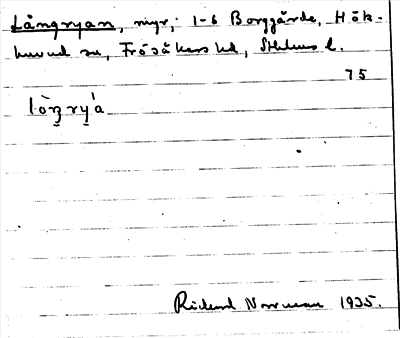 Långryan, myr; 1-6 Borggårde, Hök-
huvud sn, Frösåkers hd, Sthlms l.
75
lòŋryˊa
Rickard Norrman 1935.